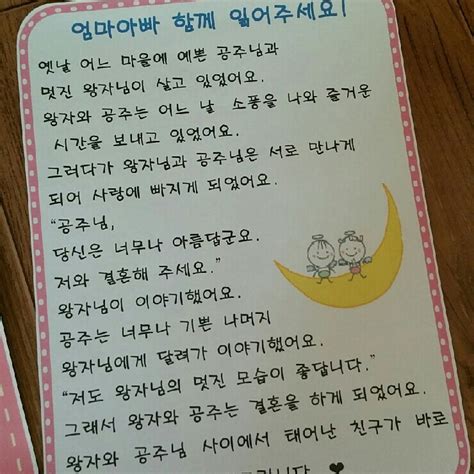 엄마아빠 함께 읽어주세요!
옛날 어느 마을에 예쁜 공주님과
멋진 왕자님이 살고 있었어요.
왕자와 공주는 어느 날 소풍을 나와 즐거운
시간을 보내고 있었어요.
그러다가 왕자님과 공주님은 서로 만나게
되어 사랑에 빠지게 되었어요.
“공주님,
당신은 너무나 아름답군요.
저와 결혼해 주세요.”
왕자님이 이야기했어요.
공주는 너무나 기쁜 나머지
왕자님에게 달려가 이야기했어요.
“저도 왕자님의 멋진 모습이 좋답니다.”
그래서 왕자와 공주는 결혼을 하게 되었어요.
왕자와 공주님 사이에서 태어난 친구가 바로